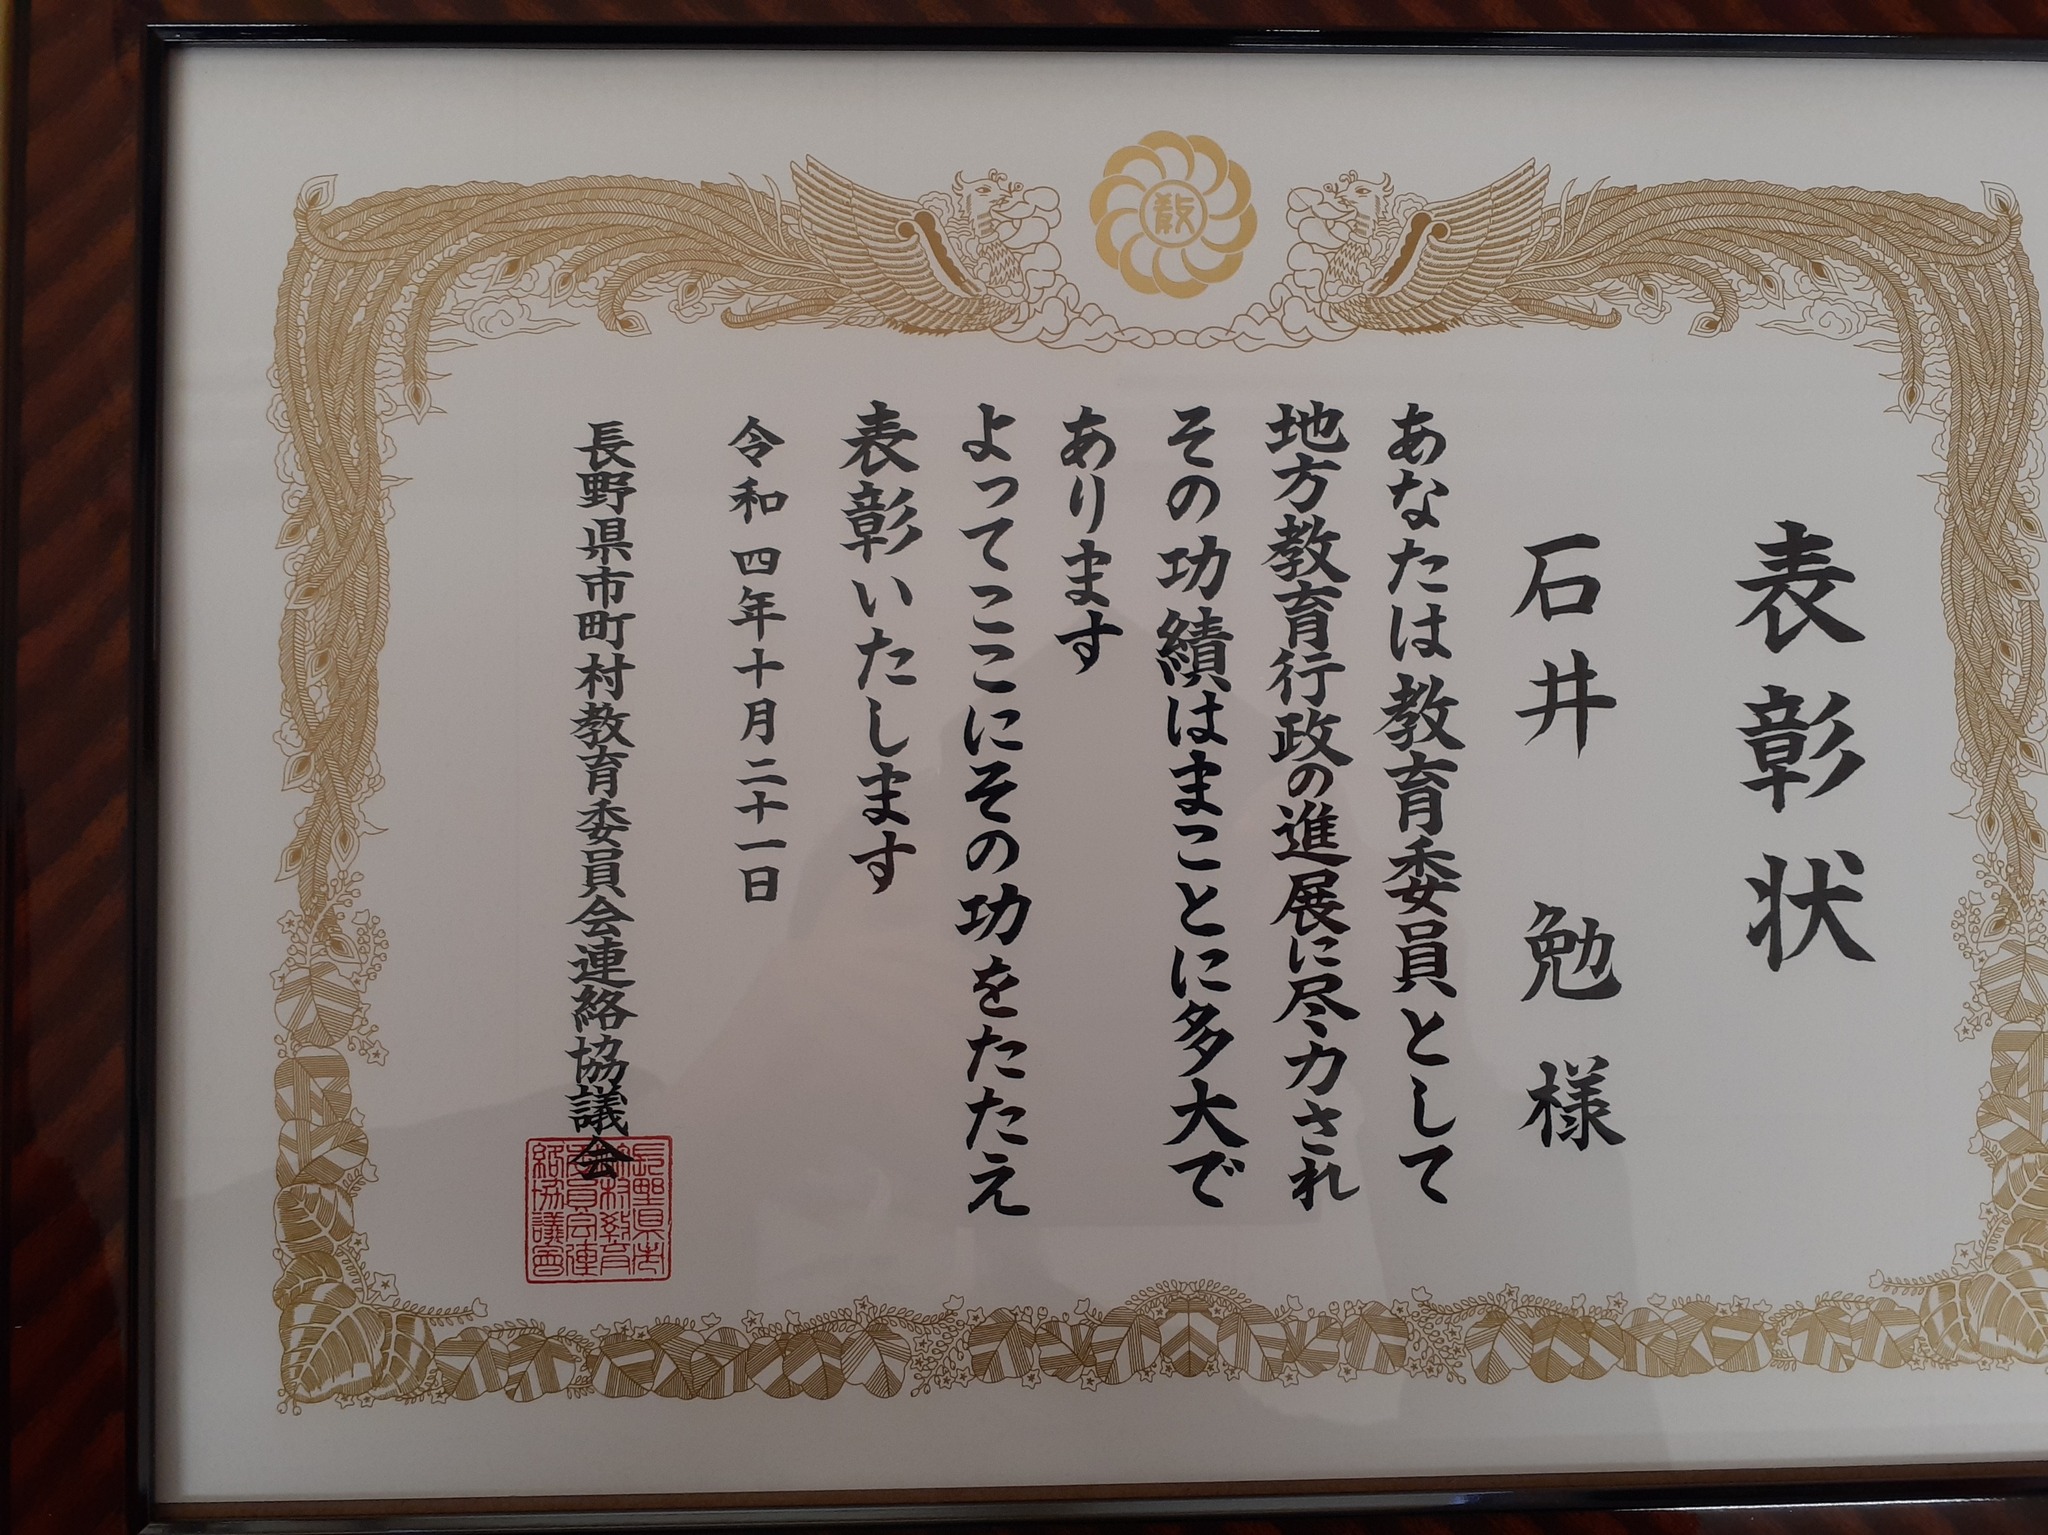 教
表彰状
石井 勉 様
あなたは教育委員として
地方教育行政の進展に尽力され
その功績はまことに多大で
あります
よってここにその功をたたえ
表彰いたします
令和四年十月二十一日
長野県市町村教育委員会連絡協議会